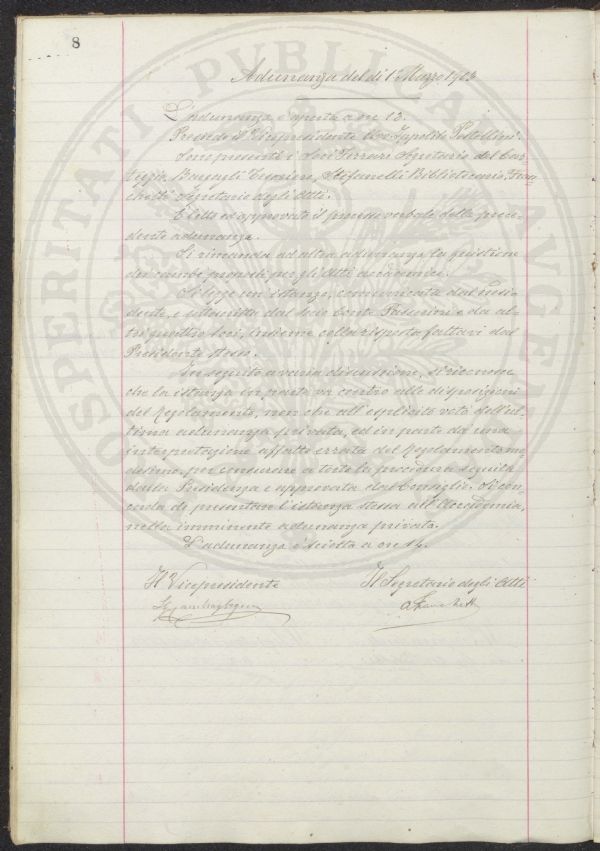 8
PROSPERITATI PUBLICAE AUGENDAE
Adunanza del dì 1º Marzo 1903
L'adunanza è aperta a ore 13.
Presiede il Vicepresidente Cav. Ippolito Pestellini.
Sono presenti i Soci Ferrari Segretario del Car-
teggio, Bargagli Tesoriere, Stefanelli Bibliotecario, Fran-
chetti Segretario degli Atti.
È letto ed approvato il processo verbale della prece-
dente adunanza.
Si rimanda ad altra adunanza la quistione
dei cambi proposti per gli Atti accademici.
Si legge un'istanza, comunicata dal Presi-
dente, e sottoscritta dal socio Conte Passerini e da al-
tri quattro soci, insieme colla risposta fattavi dal
Presidente stesso.
In seguito a varia discussione, si riconosce
che la istanza in parte va contro alle disposizioni
del Regolamento, non che all'esplicito voto dell'ul-
tima adunanza privata, ed in parte da una
interpretazione affatto errata del Regolamento me-
desimo, per censurare a torto la procedura seguita
dalla Presidenza e approvata dal Consiglio. Si con-
corda di presentare l'istanza stessa all'Accademia,
nella imminente adunanza privata.
L'adunanza è sciolta a ore 14.
Il Vicepresidente
Il Segretario degli Atti
A Franchetti